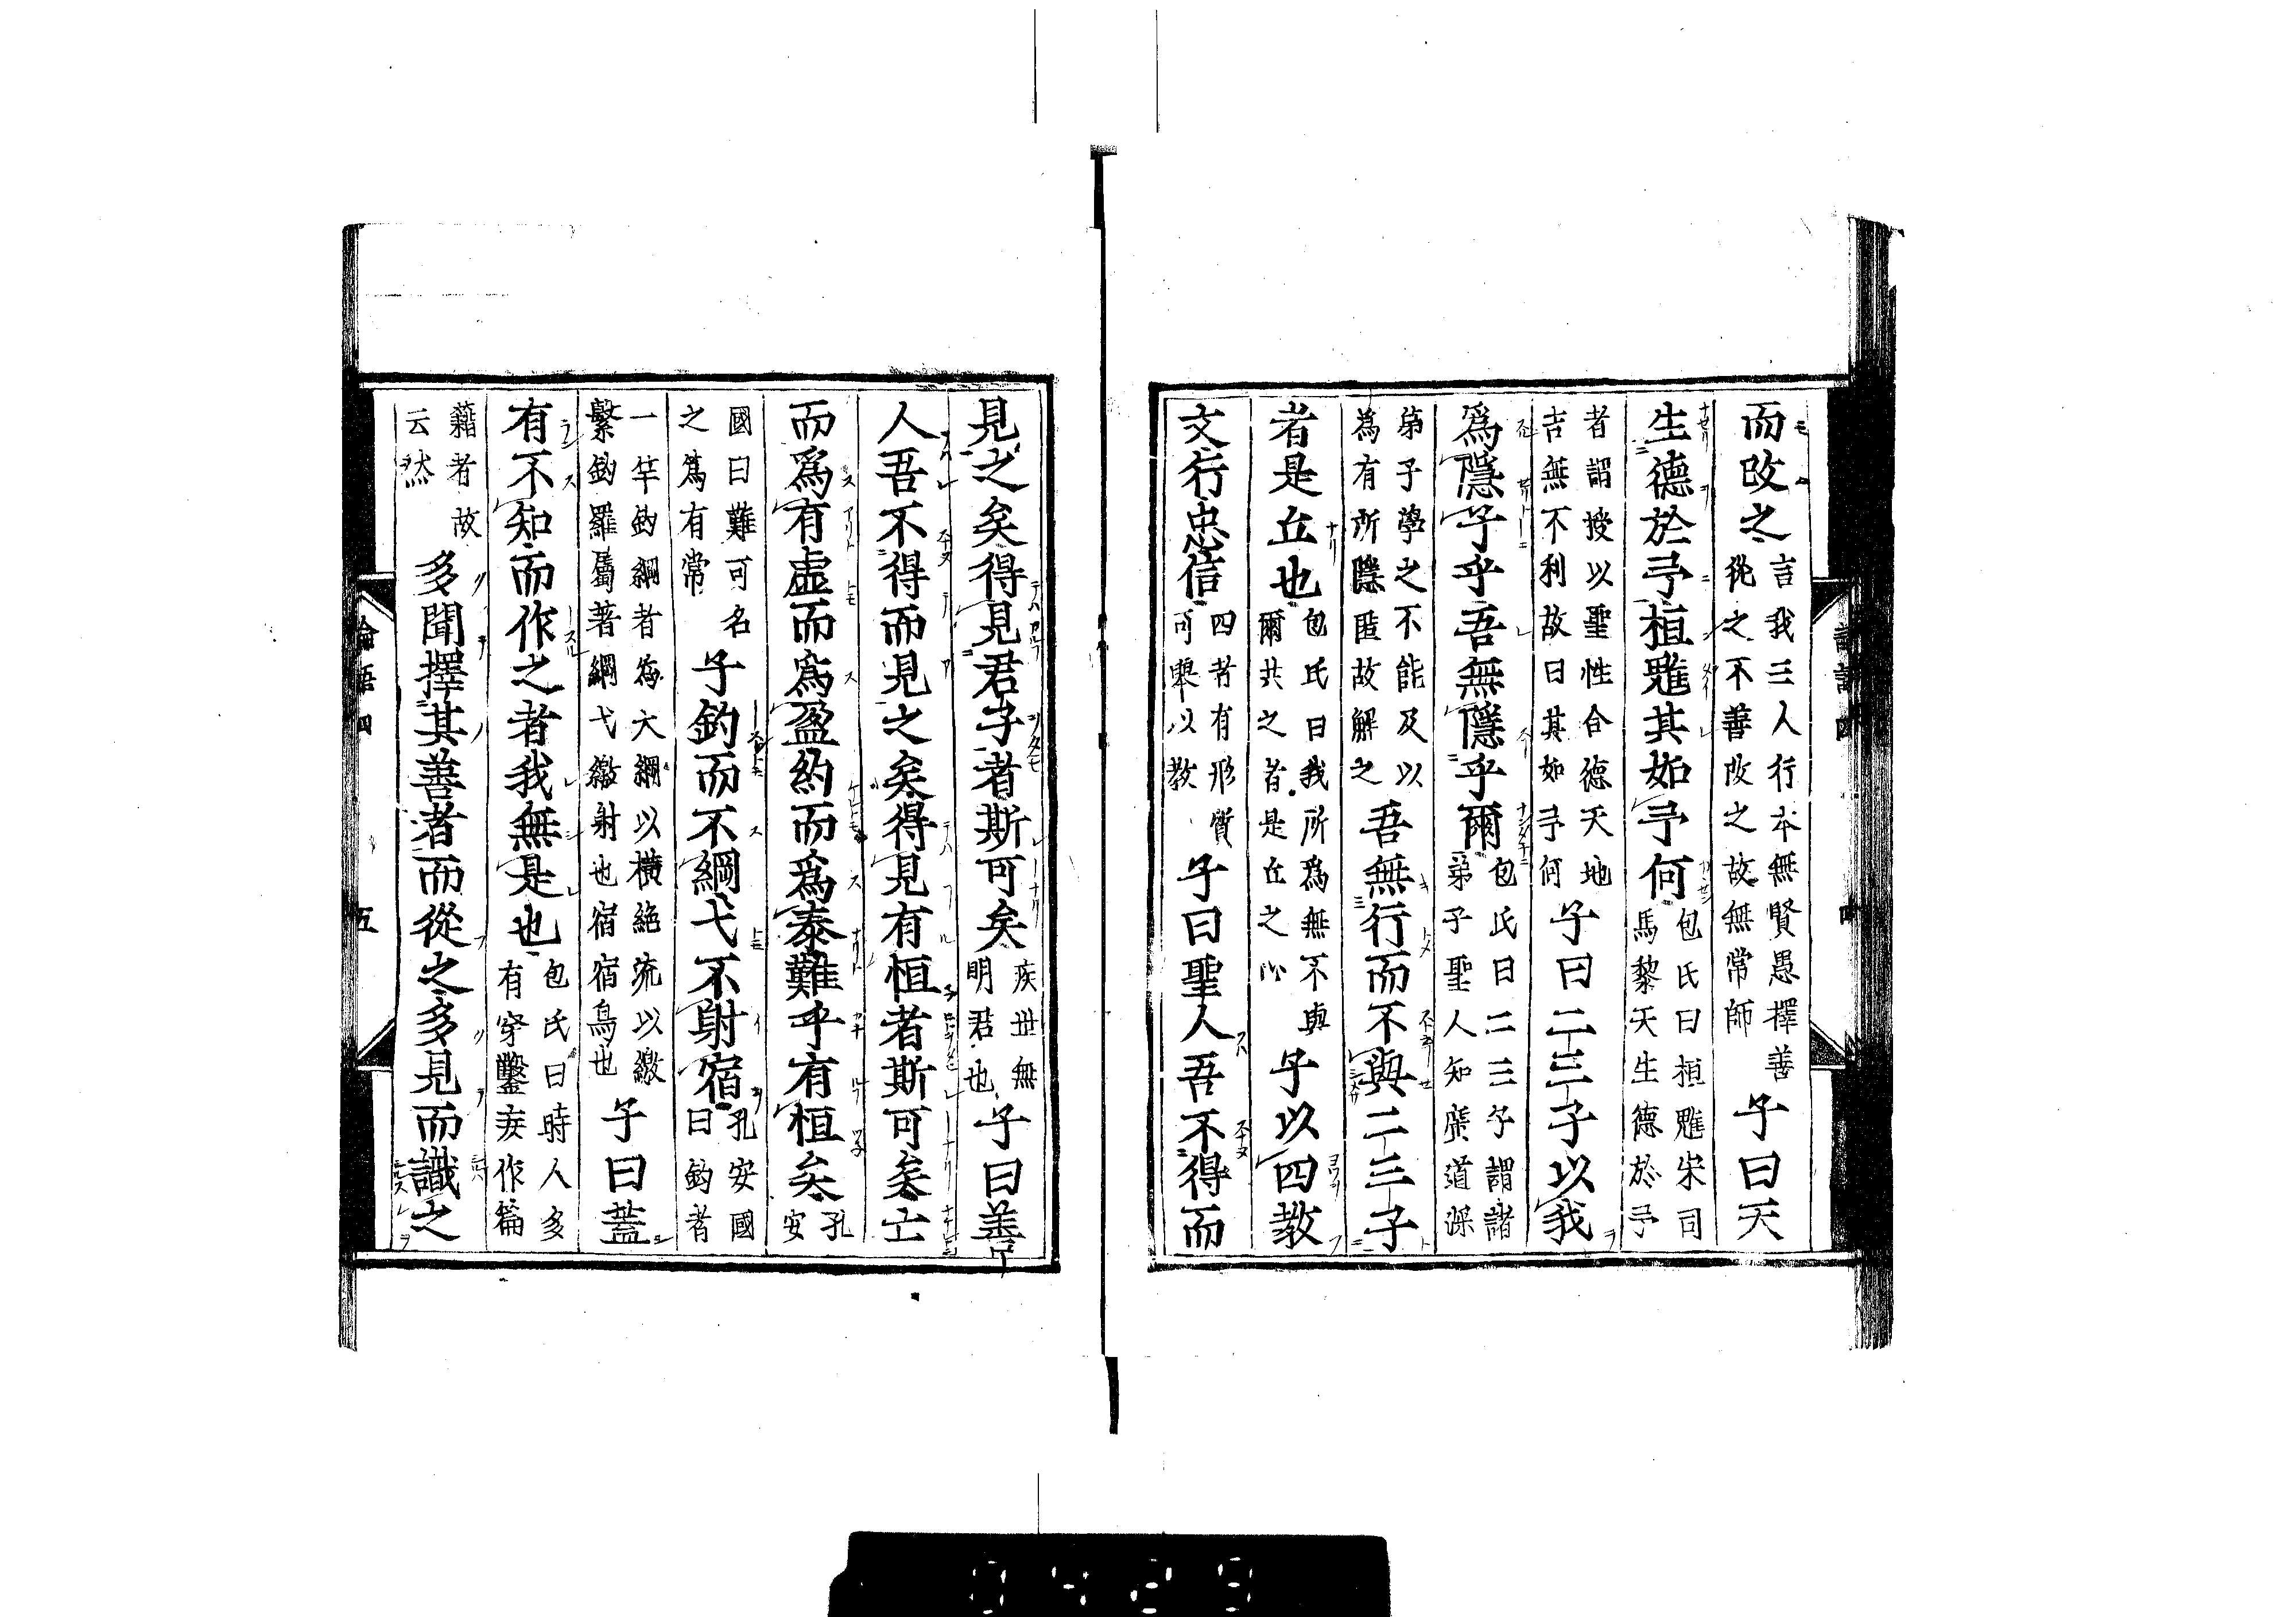 而改之言我三人行本無賢愚擇善從之不善改之故無常師子曰天
生德於予桓魋其如予何包氏曰桓魋宋司馬黎天生德於予
者謂授以聖性合德天地吉無不利故曰其如予何子曰二三子以我
爲隱子乎吾無隱乎爾包氏曰二三子謂諸弟子聖人知廣道深
弟子學之不能及以為有所隱匿故解之吾無行而不與二三子
者是丘也包氏曰我所為無不與爾共之者是丘之心子以四教
文行忠信四者有形質可舉以教子曰聖人吾不得而
見之矣得見君子者斯可矣疾世無明君也子曰善
人吾不得而見之矣得見有恒者斯可矣亡
而爲有虛而爲盈約而爲泰難乎有恒矣孔安
國曰難可名之為有常子釣而不綱弋不射宿孔安國曰釣者
一竿釣綱者為大綱以橫絕流以繳繫釣羅屬著綱弋繳射也宿宿鳥也子曰蓋
有不知而作之者我無是也包氏曰時人多有穿鑿妄作篇
籍者故云然多聞擇其善者而從之多見而識之
論語四
五